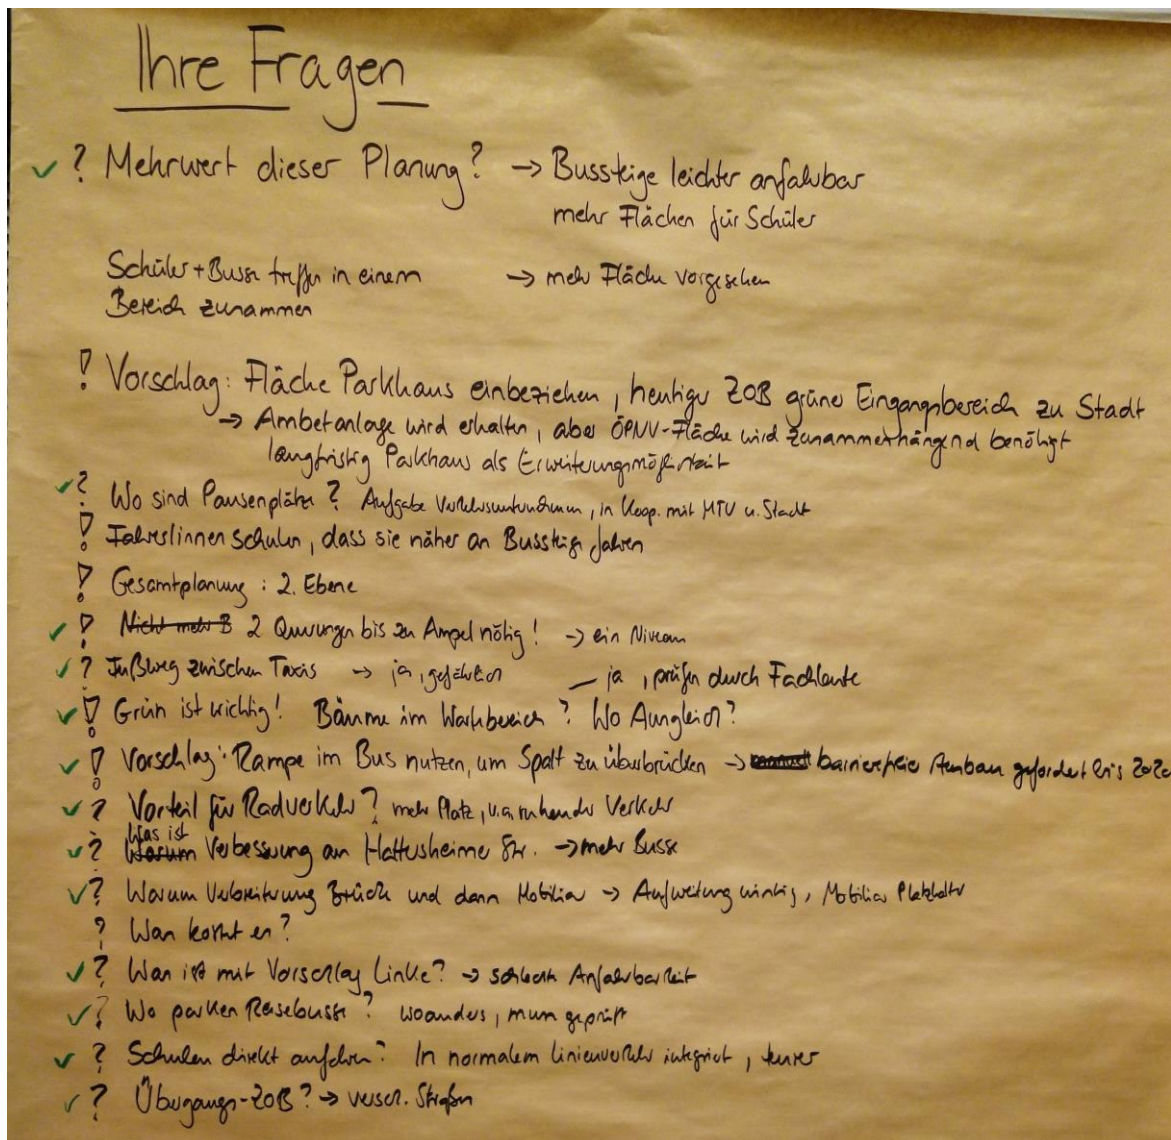 Ihre Fragen
✓ ? Mehrwert dieser Planung? → Bussteige leichter anfahrbar
mehr Flächen für Schüler
Schüler + Busse treffen in einem → mehr Fläche vorgesehen
Bereich zusammen
! Vorschlag: Fläche Parkhaus einbeziehen, heutiger ZOB grüner Eingangsbereich zu Stadt
→ Ambetanlage wird erhalten, aber ÖPNV-Fläche wird zusammenhängend benötigt
langfristig Parkhaus als Erweiterungsmöglichkeit
✓ ? Wo sind Pausenplätze? Aufgabe Verkehrsunternehmen, in Koop. mit MTV u. Stadt
! Fahrer/innen schulen, dass sie näher an Bussteige fahren
! Gesamtplanung: 2. Ebene
✓ ! Nicht mehr B 2 Querungen bis zu Ampel nötig! → ein Niveau
✓ ? Fußweg zwischen Taxis → ja, gefährlich – ja, prüfen durch Fachleute
✓ ! Grün ist wichtig! Bäume im Wartebereich? Wo Ausgleich?
✓ ! Vorschlag: Rampe im Bus nutzen, um Spalt zu überbrücken → barrierefreie Ausbau gefordert bis 202
✓ ? Vorteil für Radverkehr? mehr Platz, u.a. ruhender Verkehr
Was ist
✓ ? Warum Verbesserung an Hattersheimer Str. → mehr Busse
✓ ? Warum Verbreiterung Brücke und dann Mobiliar → Aufweitung wichtig, Mobiliar Platzhalter
? Was kostet es?
✓ ? Was ist mit Vorschlag Linke? → schlechte Anfahrbarkeit
✓ ? Wo parken Reisebusse? woanders, muss geprüft
✓ ? Schulen direkt anfahren? In normalem Linienverkehr integriert, teurer
✓ ? Übergangs-ZOB? → versch. Straßen